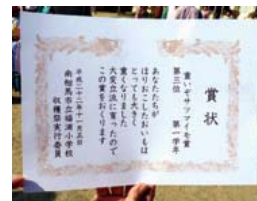 賞状
重いぞサツマイモ賞
第三位　第一学年
あなたたちが
ほりおこしたおいもは
とっても大きく
重くなりました
大変立派に育ったので
この賞をおくります
平成二十二年十一月五日
南相馬市立福浦小学校
収穫祭実行委員